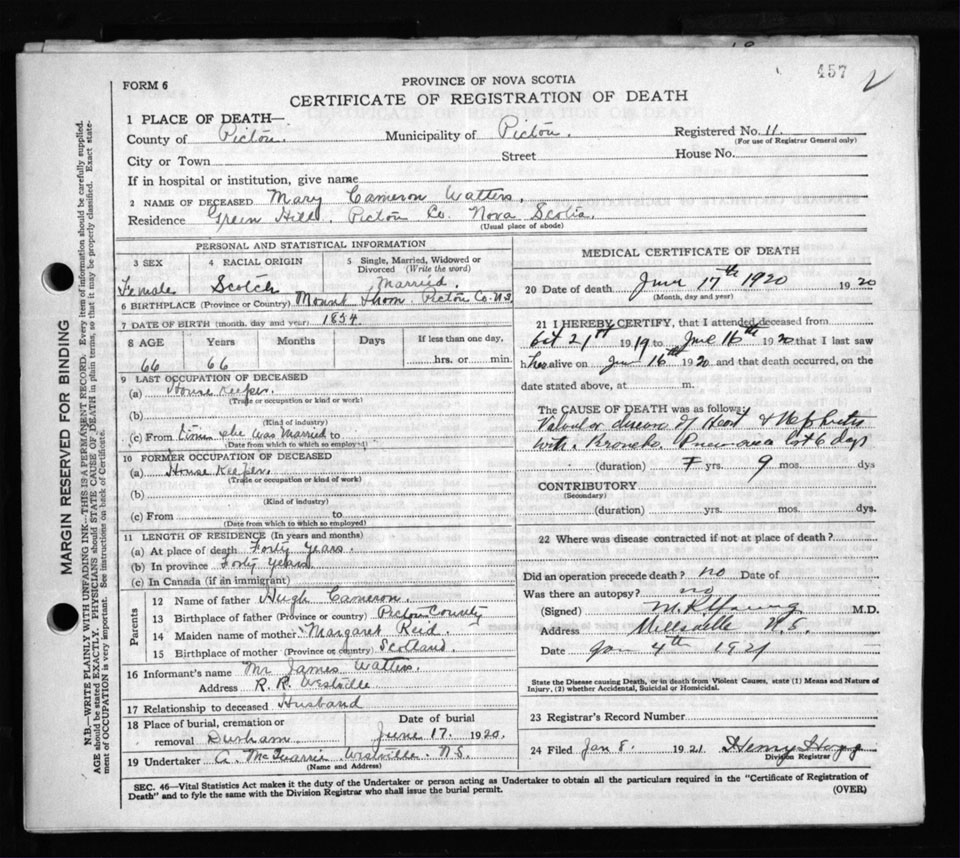 457
FORM 6
PROVINCE OF NOVA SCOTIA
CERTIFICATE OF REGISTRATION OF DEATH
1 PLACE OF DEATH—
County of Pictou. Municipality of Pictou. Registered No. 11.
(For use of Registrar General only)
City or Town Street House No.
If in hospital or institution, give name
2 NAME OF DECEASED Mary Cameron Watters.
Residence Green Hill. Pictou Co. Nova Scotia.
(Usual place of abode)
PERSONAL AND STATISTICAL INFORMATION
3 SEX 4 RACIAL ORIGIN 5 Single, Married, Widowed or Divorced (Write the word)
Female Scotch Married.
6 BIRTHPLACE (Province or Country) Mount Thom. Pictou Co. N.S.
7 DATE OF BIRTH (month, day and year) 1854.
8 AGE Years Months Days If less than one day,
66 66 hrs. or min.
9 LAST OCCUPATION OF DECEASED
(a) House Keeper.
(Trade or occupation or kind of work)
(b)
(Kind of industry)
(c) From time she was Married to
(Date from which to which so employed)
10 FORMER OCCUPATION OF DECEASED
(a) House Keeper.
(Trade or occupation or kind of work)
(b)
(Kind of industry)
(c) From to
(Date from which to which so employed)
11 LENGTH OF RESIDENCE (In years and months)
(a) At place of death Forty Years.
(b) In province Forty Years.
(c) In Canada (if an immigrant)
Parents
12 Name of father Hugh Cameron.
13 Birthplace of father (Province or country) Pictou County
14 Maiden name of mother Margaret Reid.
15 Birthplace of mother (Province or country) Scotland.
16 Informant's name Mr James Watters.
Address R. R. Westville
17 Relationship to deceased Husband
18 Place of burial, cremation or removal Durham Date of burial June 17. 1920.
19 Undertaker A. McQuarrie Westville. N.S.
(Name and Address)
MEDICAL CERTIFICATE OF DEATH
20 Date of death June 17th 1920 1920
(Month, day and year)
21 I HEREBY CERTIFY, that I attended deceased from
Oct 21st 1919 to June 16th 1920 that I last saw
her alive on June 16th 1920 and that death occurred, on the
date stated above, at m.
The CAUSE OF DEATH was as follows:
Valvular disease of Heart & Nephritis
with Broncho Pneumonia last 6 days
(duration) yrs. 9 mos. dys
CONTRIBUTORY
(Secondary)
(duration) yrs. mos. dys.
22 Where was disease contracted if not at place of death?
Did an operation precede death? no Date of
Was there an autopsy? no
(Signed) M R Young M.D.
Address Millsville N.S.
Date Jan 4th 1921
State the Disease causing Death, or in death from Violent Causes, state (1) Means and Nature of
Injury, (2) whether Accidental, Suicidal or Homicidal.
23 Registrar's Record Number
24 Filed Jan 8. 1921. Henry Hogg
Division Registrar
SEC. 46—Vital Statistics Act makes it the duty of the Undertaker or person acting as Undertaker to obtain all the particulars required in the "Certificate of Registration of
Death" and to fyle the same with the Division Registrar who shall issue the burial permit.
(OVER)
MARGIN RESERVED FOR BINDING
N.B.—WRITE PLAINLY WITH UNFADING INK—THIS IS A PERMANENT RECORD. Every item of information should be carefully supplied.
AGE should be stated EXACTLY. PHYSICIANS should STATE CAUSE OF DEATH in plain terms, so that it may be properly classified. Exact state-
ment of OCCUPATION is very important. See instructions on back of Certificate.